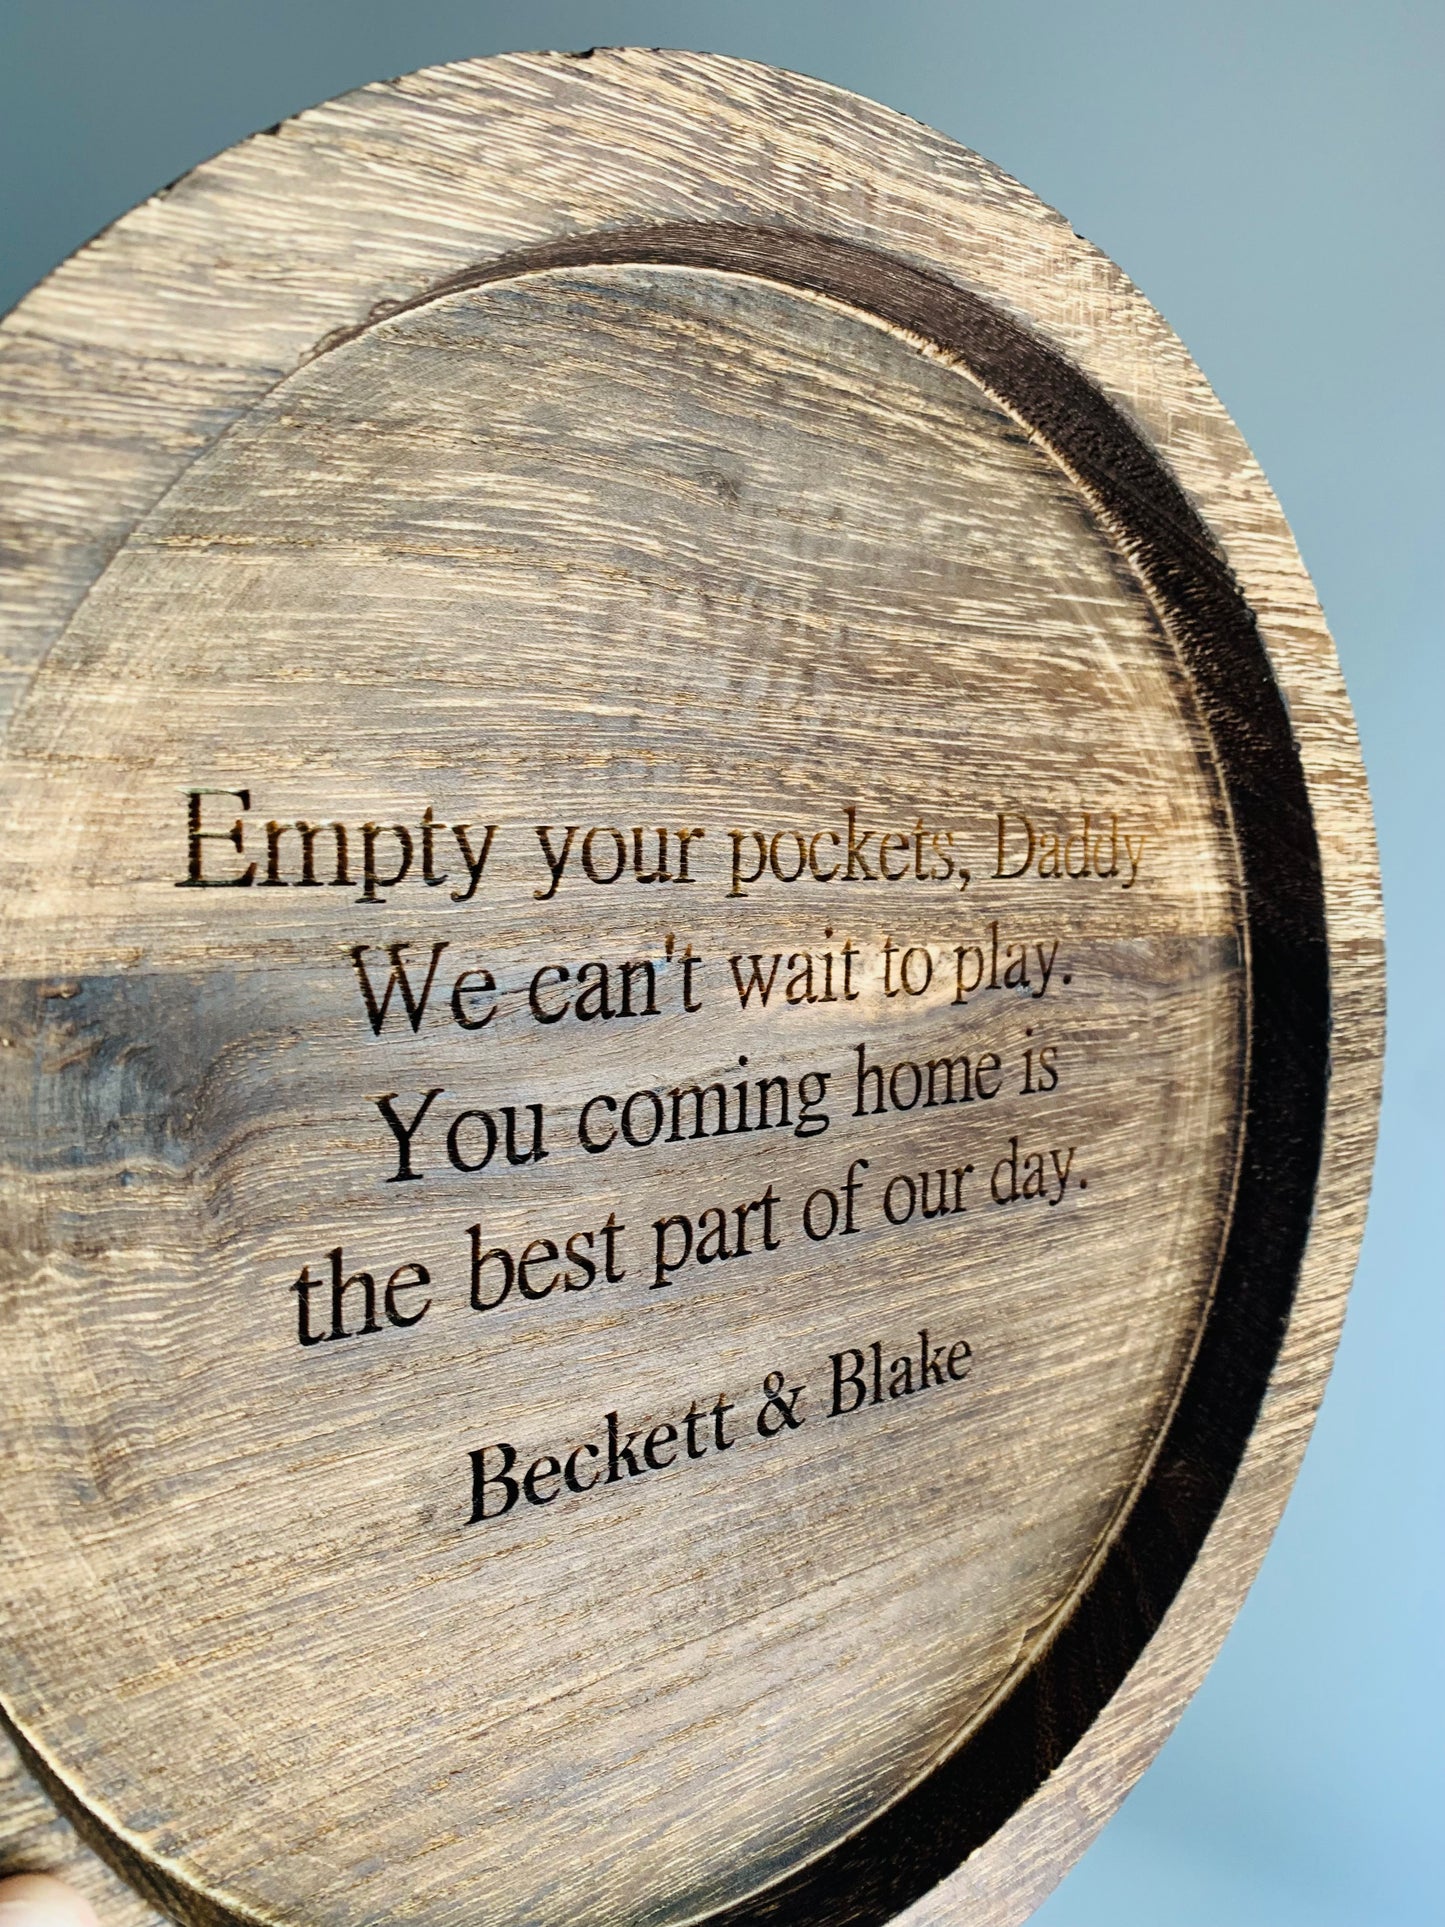 Empty your pockets, Daddy
We can't wait to play.
You coming home is
the best part of our day.
Beckett & Blake